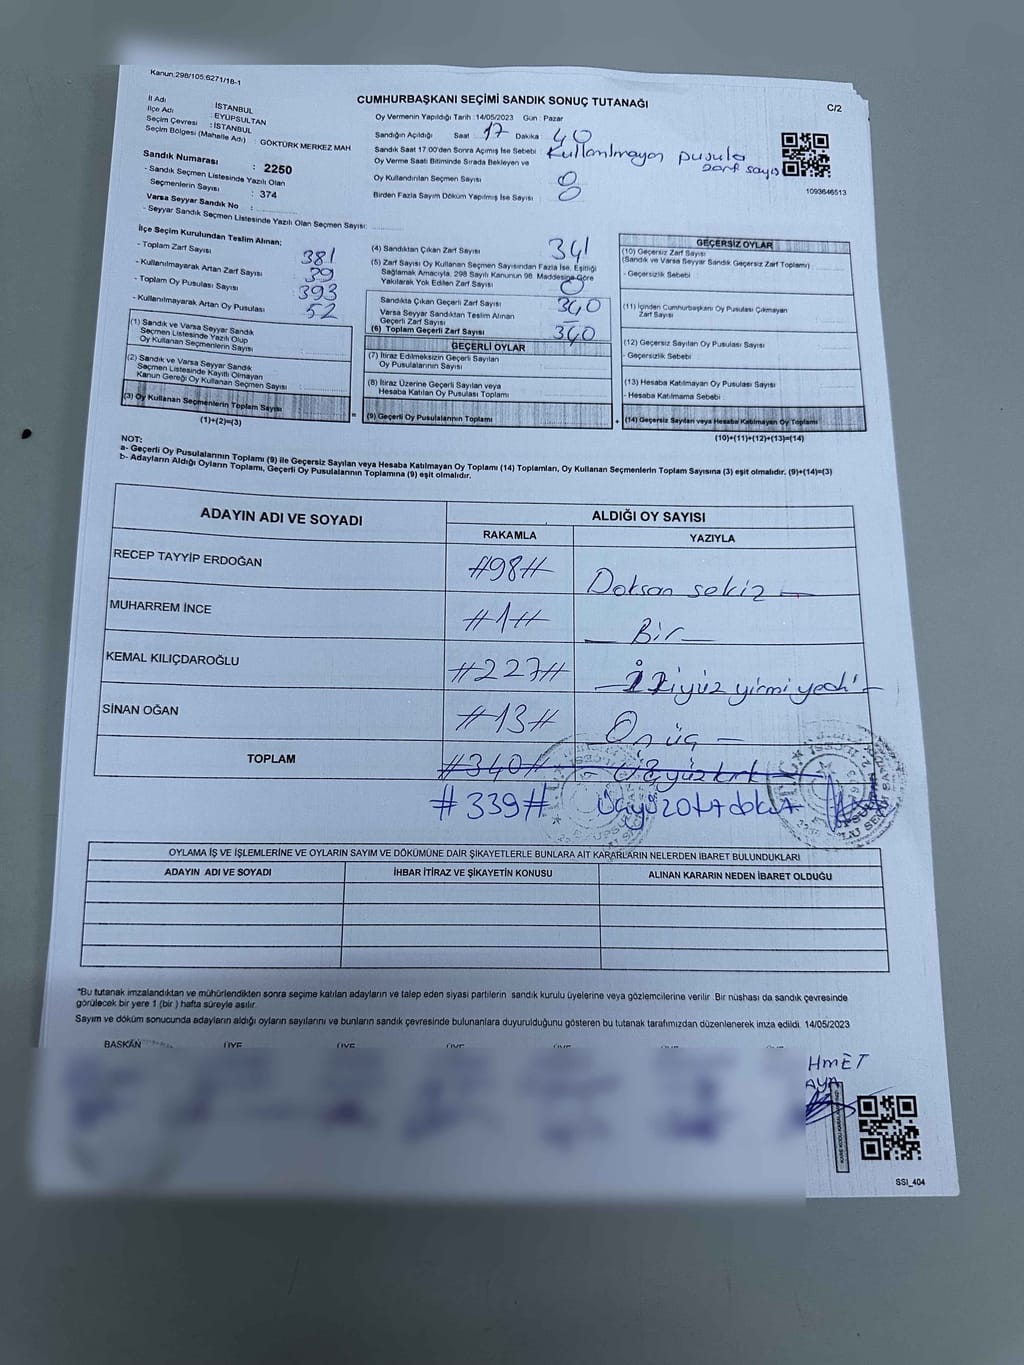 Kanun.298/105.6271/18-1
CUMHURBAŞKANI SEÇİMİ SANDIK SONUÇ TUTANAĞI
C/2
İl Adı : İSTANBUL
İlçe Adı : EYÜPSULTAN
Seçim Çevresi : İSTANBUL
Seçim Bölgesi (Mahalle Adı) : GÖKTÜRK MERKEZ MAH
Sandık Numarası : 2250
- Sandık Seçmen Listesinde Yazılı Olan
Seçmenlerin Sayısı : 374
Varsa Seyyar Sandık No :
- Seyyar Sandık Seçmen Listesinde Yazılı Olan Seçmen Sayısı:
Oy Vermenin Yapıldığı Tarih : 14/05/2023 Gün : Pazar
Sandığın Açıldığı Saat 17 Dakika : 40
Sandık Saat 17.00'den Sonra Açılmış İse Sebebi : Kullanılmayan pusula
zarf sayıs
Oy Verme Saati Bitiminde Sırada Bekleyen ve
Oy Kullandırılan Seçmen Sayısı 0
Birden Fazla Sayım Döküm Yapılmış İse Sayısı : 0
1093646513
İlçe Seçim Kurulundan Teslim Alınan;
- Toplam Zarf Sayısı : 381
- Kullanılmayarak Artan Zarf Sayısı : 39
- Toplam Oy Pusulası Sayısı : 393
- Kullanılmayarak Artan Oy Pusulası : 52
(1) Sandık ve Varsa Seyyar Sandık
Seçmen Listesinde Yazılı Olup
Oy Kullanan Seçmenlerin Sayısı :
(2) Sandık ve Varsa Seyyar Sandık
Seçmen Listesinde Kayıtlı Olmayan
Kanun Gereği Oy Kullanan Seçmen Sayısı :
(3) Oy Kullanan Seçmenlerin Toplam Sayısı
(1)+(2)=(3)
(4) Sandıktan Çıkan Zarf Sayısı 341
(5) Zarf Sayısı Oy Kullanan Seçmen Sayısından Fazla İse, Eşitliği
Sağlamak Amacıyla, 298 Sayılı Kanunun 98. Maddesine Göre
Yakılarak Yok Edilen Zarf Sayısı : 0
Sandıkta Çıkan Geçerli Zarf Sayısı : 340
Varsa Seyyar Sandıktan Teslim Alınan
Geçerli Zarf Sayısı : -
(6) Toplam Geçerli Zarf Sayısı : 340
GEÇERLİ OYLAR
(7) İtiraz Edilmeksizin Geçerli Sayılan
Oy Pusulalarının Sayısı :
(8) İtiraz Üzerine Geçerli Sayılan veya
Hesaba Katılan Oy Pusulası Toplamı :
= (9) Geçerli Oy Pusulalarının Toplamı
GEÇERSİZ OYLAR
(10) Geçersiz Zarf Sayısı
(Sandık ve Varsa Seyyar Sandık Geçersiz Zarf Toplamı) :
- Geçersizlik Sebebi :
(11) İçinden Cumhurbaşkanı Oy Pusulası Çıkmayan
Zarf Sayısı :
(12) Geçersiz Sayılan Oy Pusulası Sayısı :
- Geçersizlik Sebebi :
(13) Hesaba Katılmayan Oy Pusulası Sayısı :
- Hesaba Katılmama Sebebi :
+ (14) Geçersiz Sayılan veya Hesaba Katılmayan Oy Toplamı
(10)+(11)+(12)+(13)=(14)
NOT:
a- Geçerli Oy Pusulalarının Toplamı (9) ile Geçersiz Sayılan veya Hesaba Katılmayan Oy Toplamı (14) Toplamları, Oy Kullanan Seçmenlerin Toplam Sayısına (3) eşit olmalıdır. (9)+(14)=(3)
b- Adayların Aldığı Oyların Toplamı, Geçerli Oy Pusulalarının Toplamına (9) eşit olmalıdır.
ADAYIN ADI VE SOYADI
ALDIĞI OY SAYISI
RAKAMLA YAZIYLA
RECEP TAYYİP ERDOĞAN #98# Doksan sekiz
MUHARREM İNCE #1# Bir
KEMAL KILIÇDAROĞLU #227# İkiyüz yirmi yedi
SİNAN OĞAN #13# On üç
TOPLAM #340# Üçyüzkırk
#339# Üçyüzotuzdokuz
OYLAMA İŞ VE İŞLEMLERİNE VE OYLARIN SAYIM VE DÖKÜMÜNE DAİR ŞİKAYETLERLE BUNLARA AİT KARARLARIN NELERDEN İBARET BULUNDUKLARI
ADAYIN ADI VE SOYADI İHBAR İTİRAZ VE ŞİKAYETİN KONUSU ALINAN KARARIN NEDEN İBARET OLDUĞU
*Bu tutanak imzalandıktan ve mühürlendikten sonra seçime katılan adayların ve talep eden siyasi partilerin sandık kurulu üyelerine veya gözlemcilerine verilir. Bir nüshası da sandık çevresinde
görülecek bir yere 1 (bir ) hafta süreyle asılır.
Sayım ve döküm sonucunda adayların aldığı oyların sayılarını ve bunların sandık çevresinde bulunanlara duyurulduğunu gösteren bu tutanak tarafımızdan düzenlenerek imza edildi. 14/05/2023
BAŞKAN ÜYE ÜYE ÜYE ÜYE ÜYE ÜYE
HMET
AYA
SSI_404